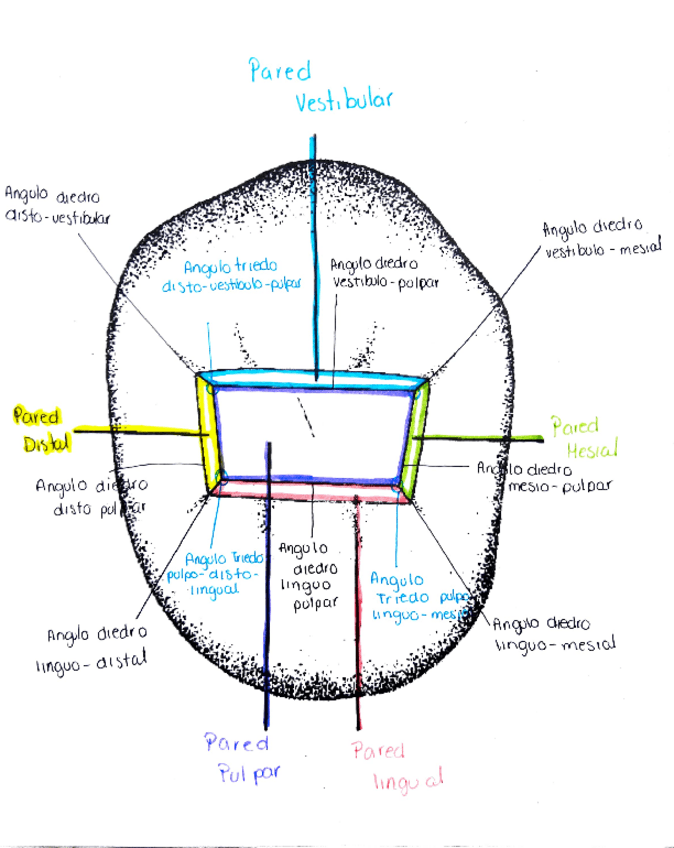 Pared
Vestibular
Angulo diedro
disto-vestibular
Angulo triedo
disto-vestibulo-pulpar
Angulo diedro
vestibulo-pulpar
Angulo diedro
vestibulo-mesial
Pared
Distal
Pared
Mesial
Angulo diedro
disto pulpar
Angulo diedro
mesio-pulpar
Angulo Triedo
pulpo-disto-
lingual
Angulo
diedro
linguo
pulpar
Angulo
Triedo pulpo
linguo-mesial
Angulo diedro
linguo-distal
Angulo diedro
linguo-mesial
Pared
Pulpar
Pared
lingual